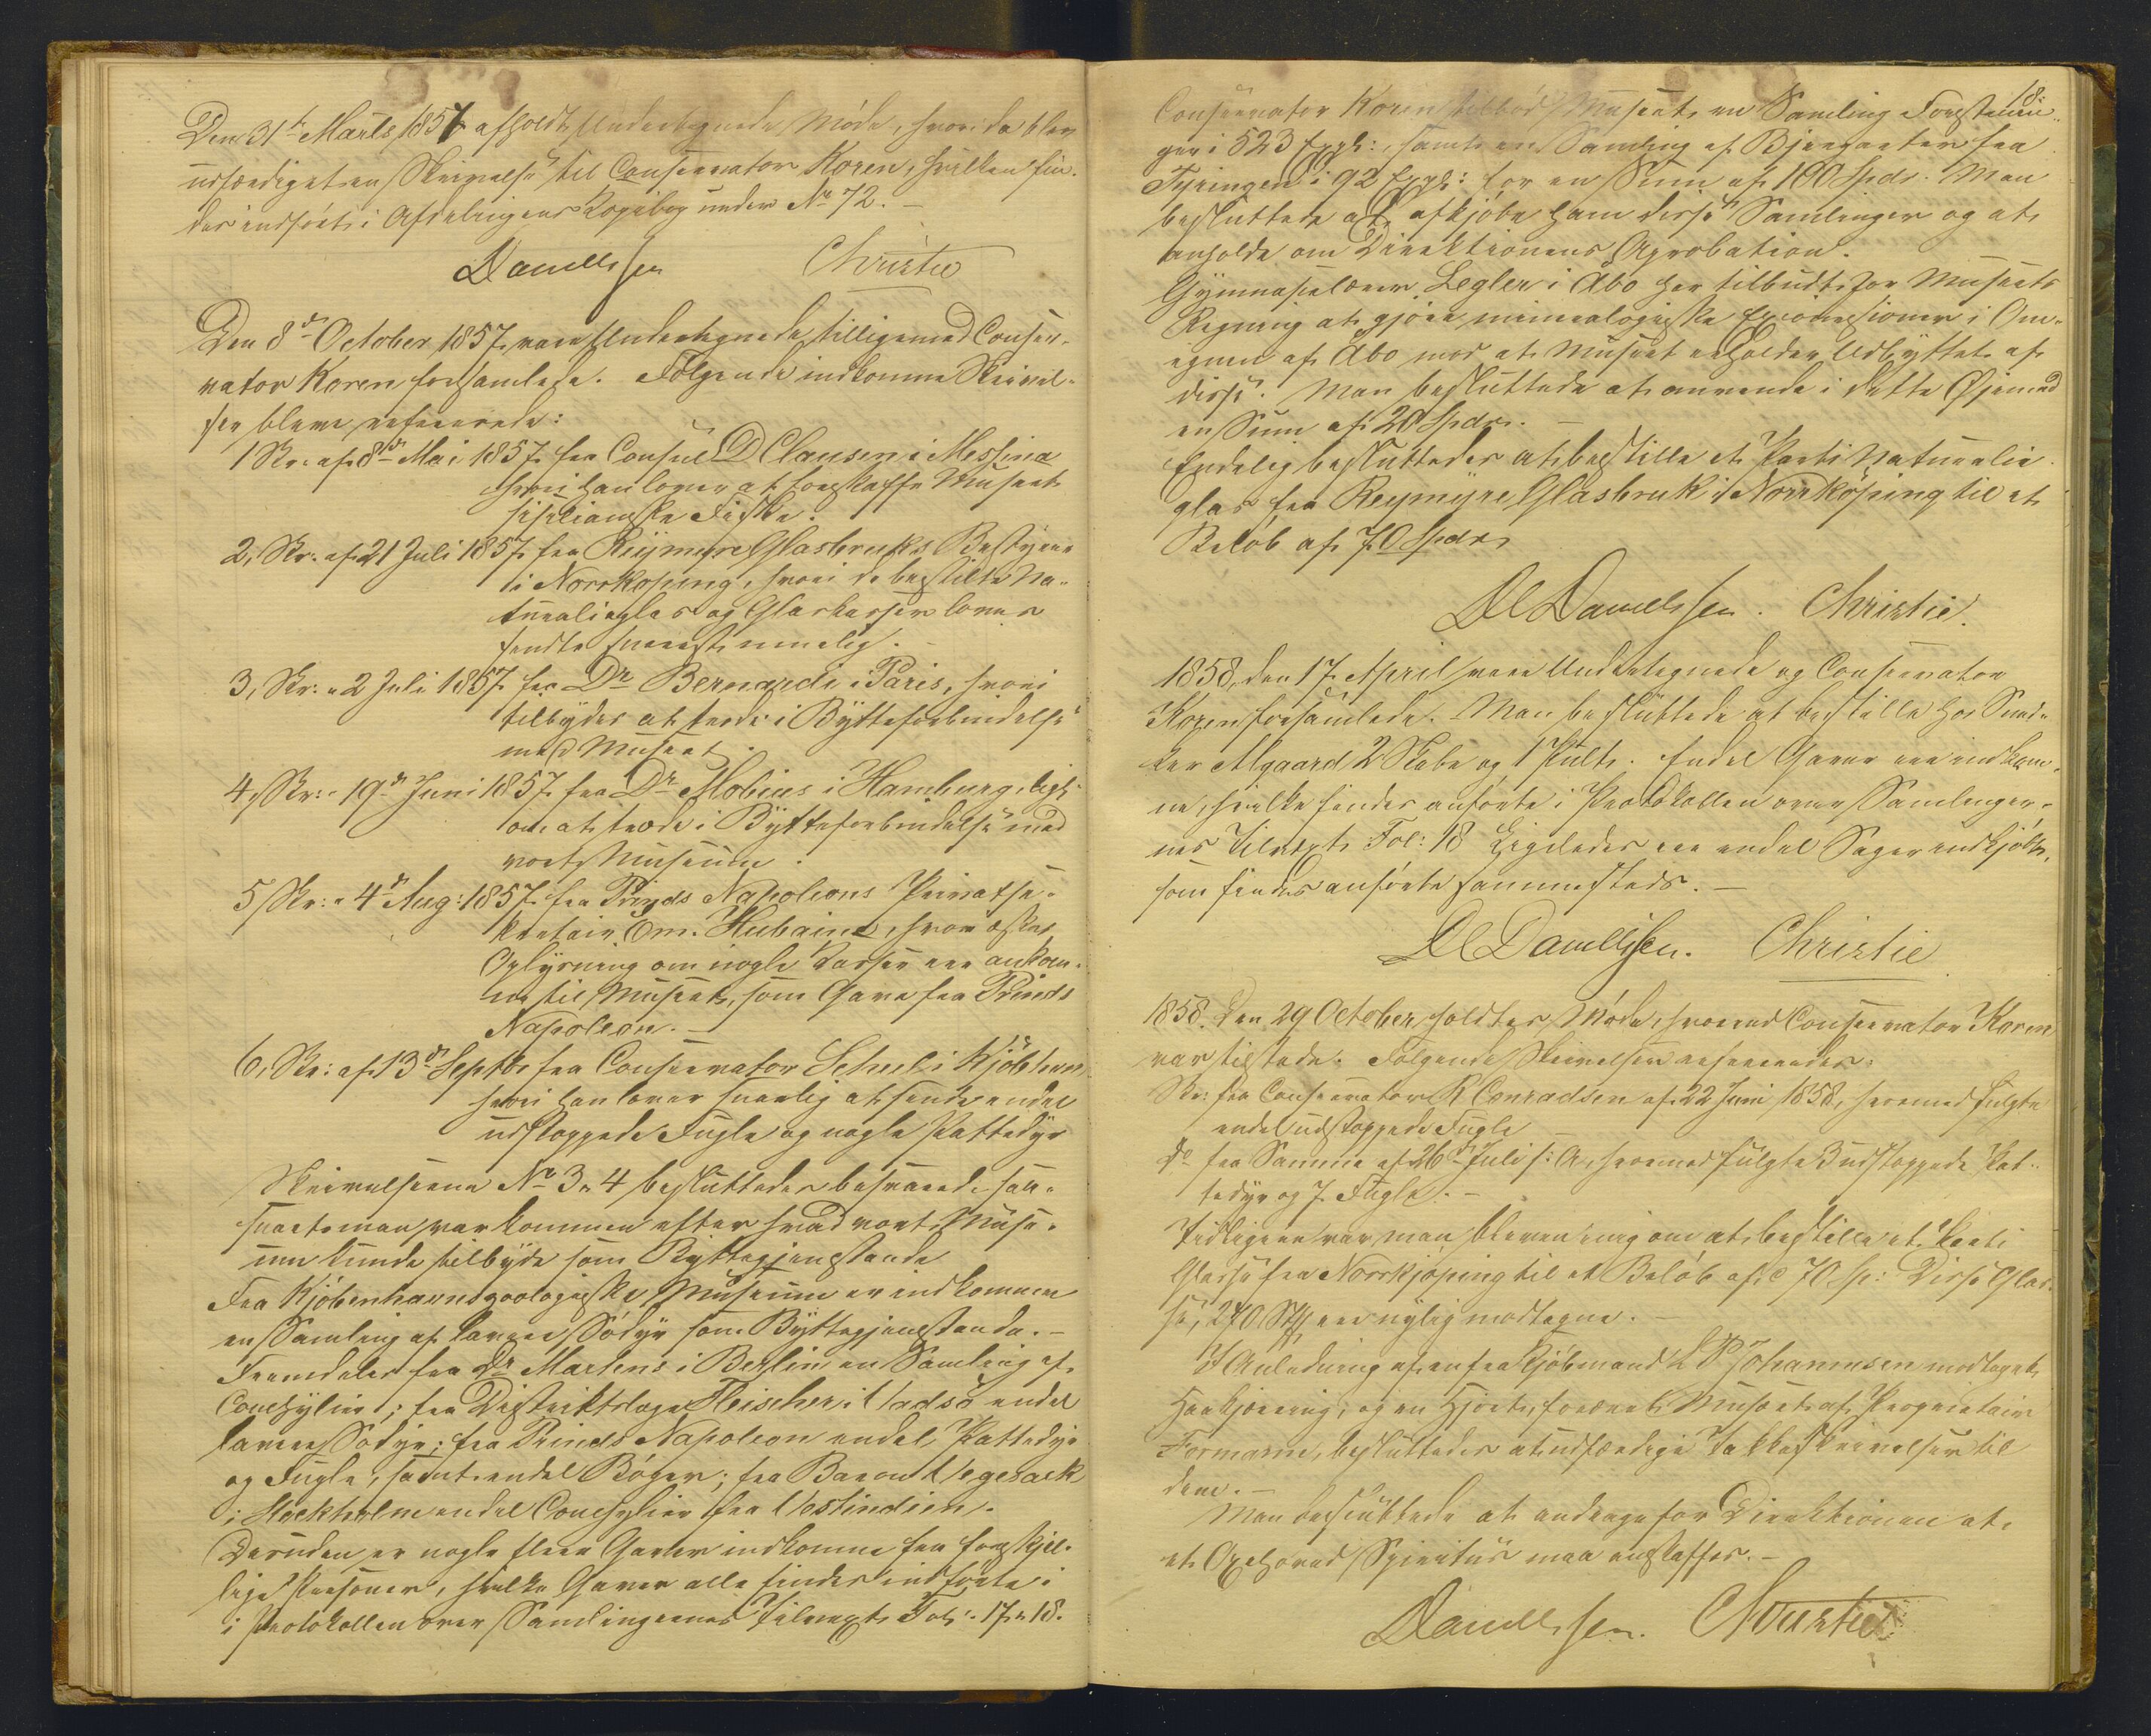 Den 31te Marts 1857 afholdt Undertegnede Møde, hvori da blev
udfærdiget en Skrivelse til Conservator Koren, hvilken fin-
des indført i Afdelingens Kopibog under No 72. –
Danielssen Christie
Den 8de October 1857 vare Undertegnede tilligemed Conser-
vator Koren forsamlede. Følgende indkomne Skrivel-
ser bleve refererede:
1 Skr: af 8de Mai 1857 fra Consul D Clausen i Messina
hvori han lover at forskaffe Museet
sisilianske Fiske.
2, Skr: af 21 Juli 1857 fra Reijmyre Glasbruks Bestyrer
i Norrkøping, hvori de bestilte Na-
turalieglas og Glaskasser loves
sendte snarest muelig. –
3, Skr: " 2 Juli 1857 fra Dr Bernardi i Paris, hvori
tilbydes at træde i Bytteforbindelse
med Museet.
4, Skr: " 19de Juni 1857 fra Dr Möbius i Hamburg, ligl:
om at træde i Bytteforbindelse med
vort Museum.
5 Skr: " 4de Aug: 1857 fra Prinds Napoleons Privatse-
kretair Em. Hubaine, hvori æskes
Oplysning om nogle Kasser ere ankom-
ne til Museet, som Gave fra Prinds
Napoleon. –
6, Skr: af 13de Septbr fra Conservator Schul i Kjöbhvn,
hvori han lover snarlig at sende endel
udstoppede Fugle og nogle Pattedyr
Skrivelserne No 3 & 4 besluttedes besvarede saa-
snart man var kommen efter hvad vort Muse-
um kunde tilbyde som Byttegjenstande
Fra Kjöbenhavns zoologiske Museum er indkommen
en Samling af lavere Södyr som Byttegjenstande. –
Fremdeles fra Dr Martens i Berlin en Samling af
Conchylier; fra Distriktslæge Fleischer i Vadsö endel
lavere Södyr; fra Prinds Napoleon endel Pattedyr
og Fugle, samt endel Bøger; fra Baron Vegesack
i Stockholm endel Conchylier fra Vestindien.
Desuden er nogle flere Gaver indkomne fra forskjel-
lige Personer, hvilke Gaver alle findes indførte i
i Protokollen over Samlingernes Tilvext Fol: 17 & 18.
18.
Conservator Koren tilbød Museet en Samling Forstenin-
ger i 523 Expl:, samt en Samling af Bjergarter fra
Tyringen i 92 Expl: for en Sum af 100 Spdr. Man
besluttede at afkjøbe ham disse Samlinger og at
anholde om Direktionens Aprobation.
Gymnasielærer Legler i Åbo har tilbudt for Museets
Regning at gjøre mineralogiske Excursioner i Om-
egnen af Åbo mod at Museet erholder Udbyttet af
disse. Man besluttede at anvende i dette Øjemed
en Sum af 20 Spdr. –
Endelig besluttedes at bestille et Parti Naturalie-
glas fra Reymyre Glasbruk i Norrköping til et
Beløb af 70 Spdr
DC Danielssen. Christie.
1858, den 17 April vare Undertegnede og Conservator
Koren forsamlede. Man besluttede at bestille hos Sned-
ker Algaard 2 Skabe og 1 Pult. Endel Gaver ere indkom-
ne, hvilke findes anførte i Protokollen over Samlinger-
nes Tilvext Fol: 18 Ligeledes ere endel Sager indkjøbte,
som findes anførte sammesteds. –
DC Danielssen. Christie
1858. Den 29 October holdtes Møde, hvorved Conservator Koren
var tilstede. Følgende Skrivelser refereredes:
Skr: fra Conservator R Conradsen af 22 Juni 1858, hvormed fulgte
endel udstoppede Fugle –
Do fra Samme af 26de Juli s: A, hvormed fulgte 3 udstoppede Pat-
tedyr og 7 Fugle. –
Tidligere var man bleven enig om at bestille et Parti
Glasse fra Norrkjøping til et Beløb af c 70 Sp: Disse Glas-
se, 240 Stk ere nylig modtagne. –
I Anledning af en fra Kjøbmand L P Johannesen modtaget
Haakjærring, og en Hjort, foræret Museet af Proprietair
Formann, besluttedes at udfærdige Takkeskrivelser til
dem. –
Man besluttede at andrage for Direktionen at
et Oxehoved Spiritus maa anskaffes. –
Danielssen. Christie